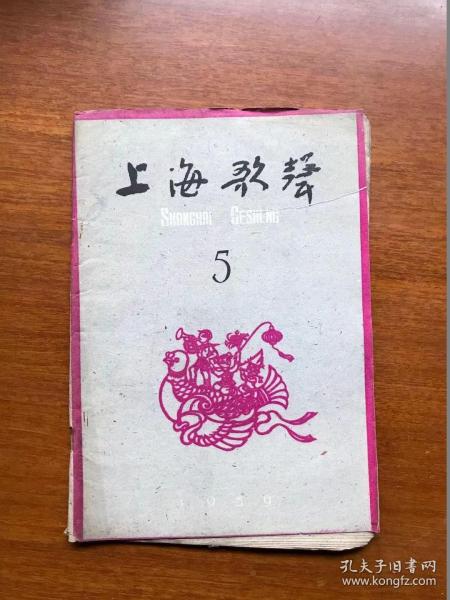 上海歌聲
SHANGHAI GESHENG
5
1959
孔夫子旧书网
www.kongfz.com